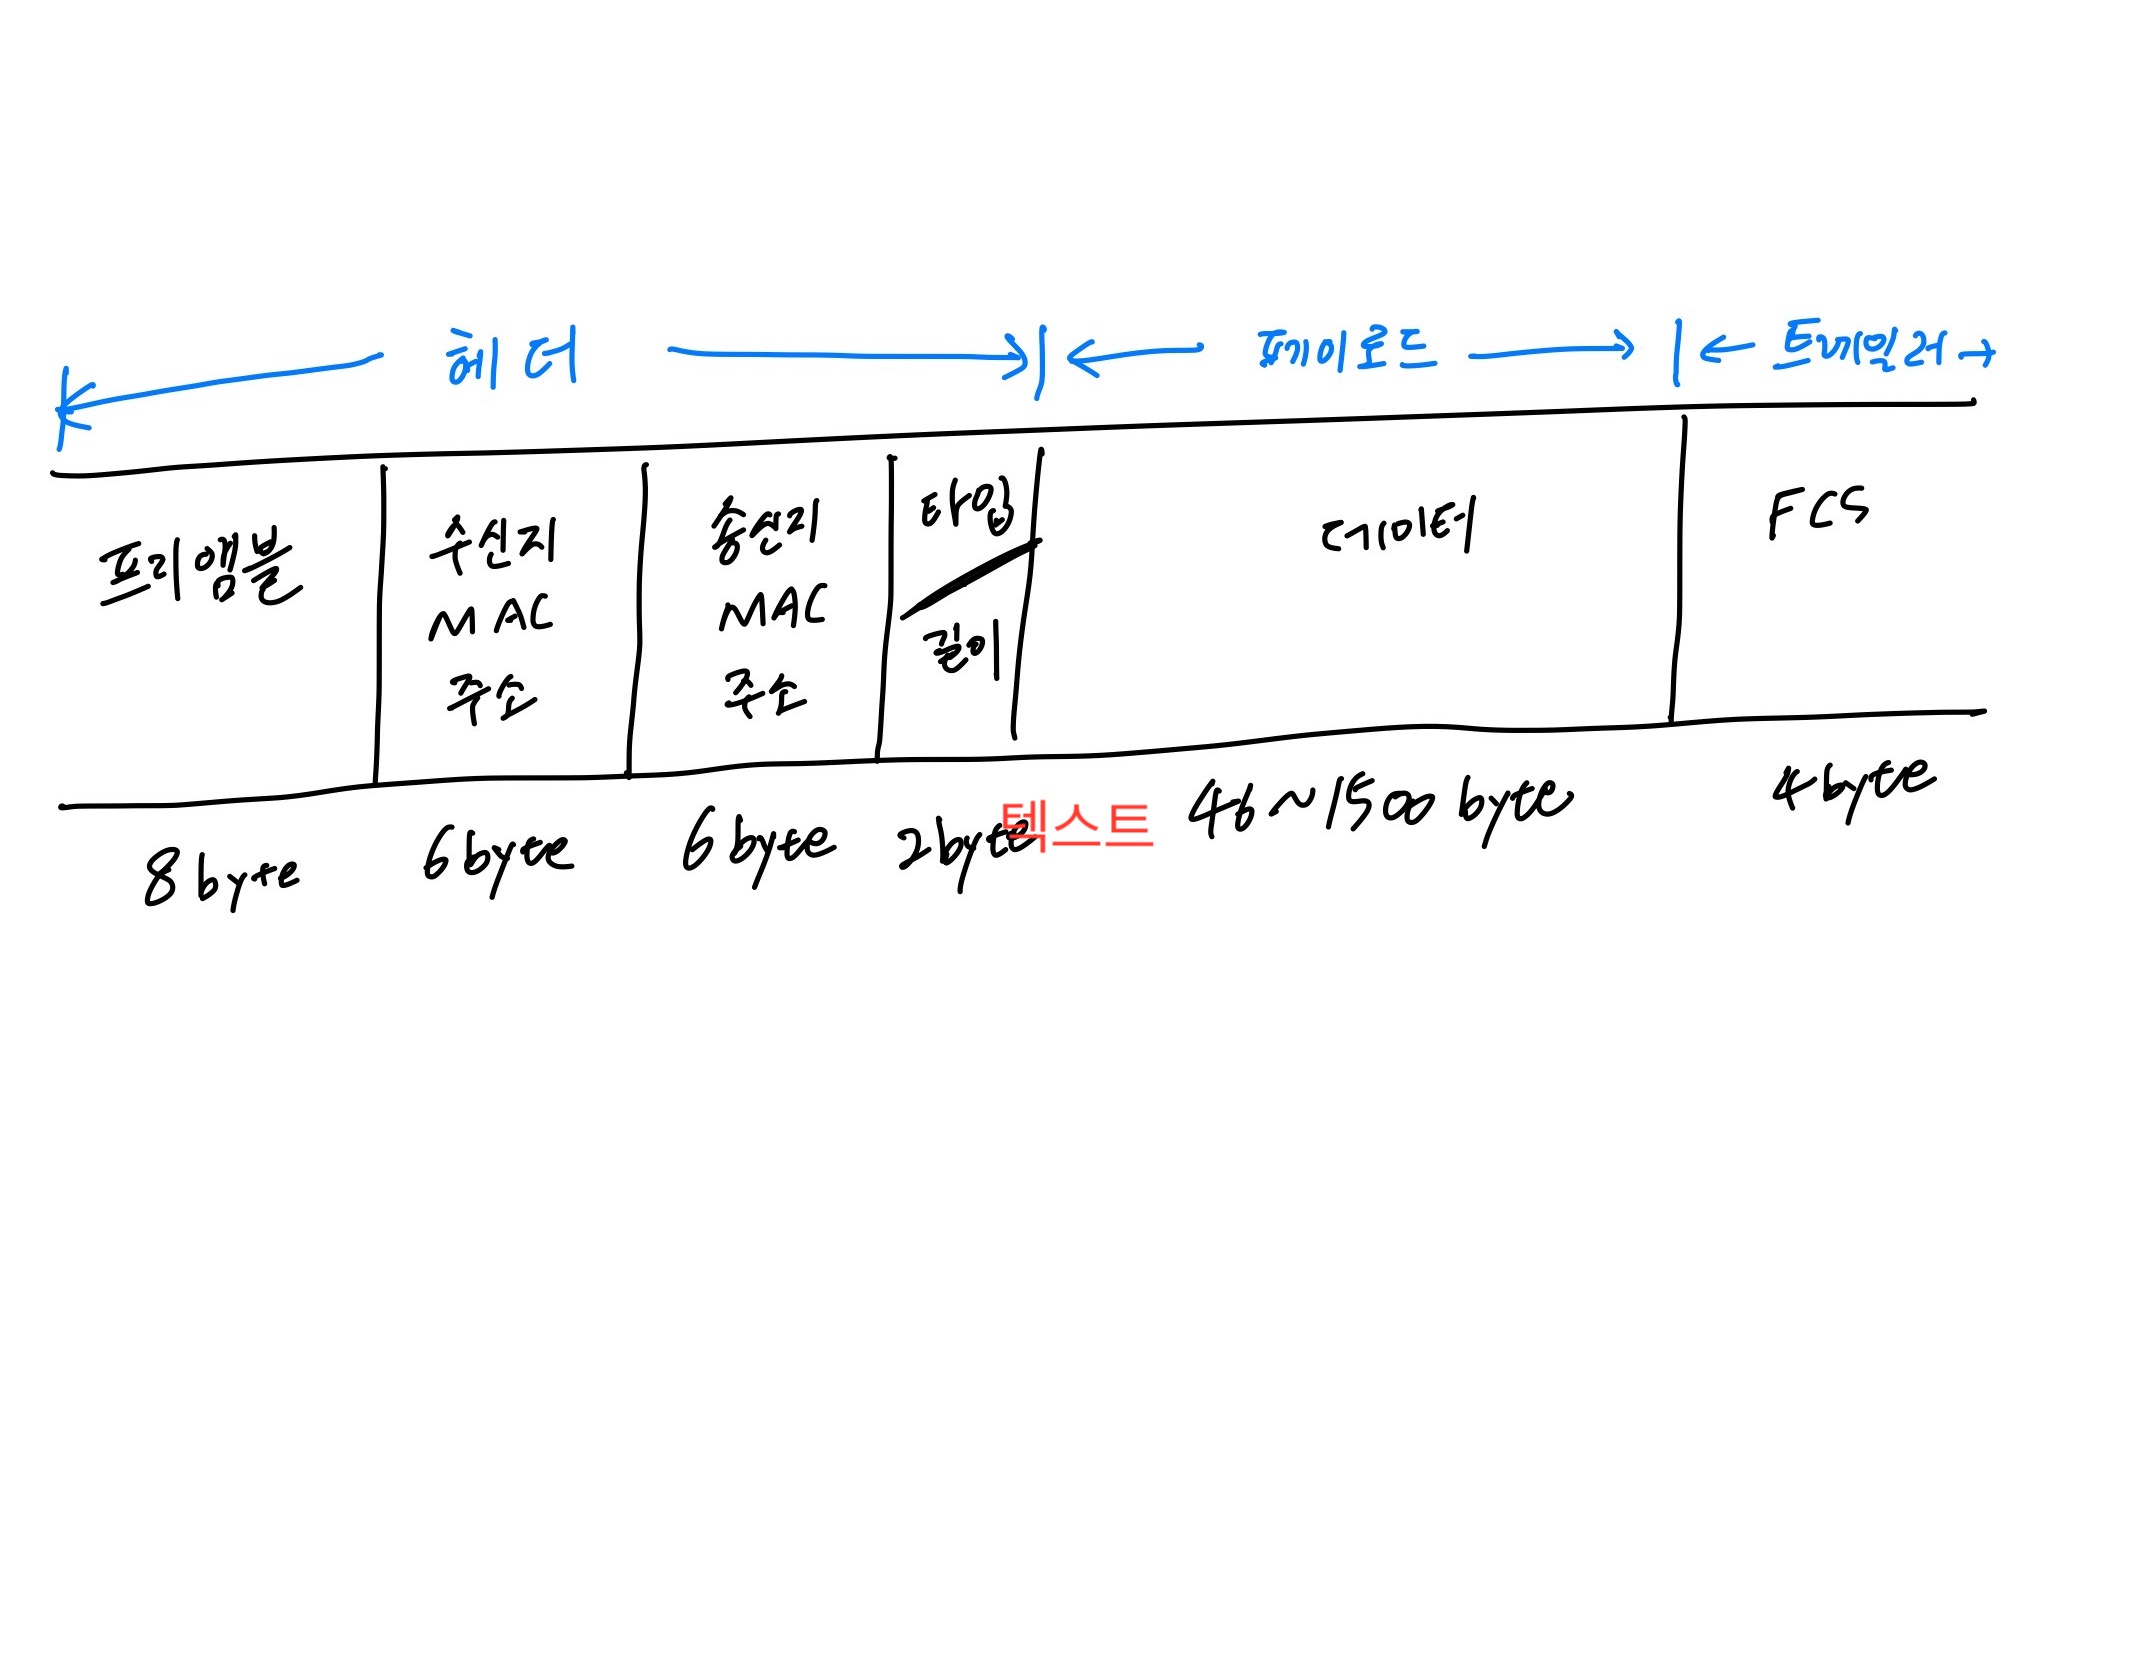 헤더 페이로드 트레일러
프리앰블
수신지
MAC
주소
송신지
MAC
주소
타입
길이
데이터
FCS
8byte 6byte 6byte 2byte 46~1500byte 4byte
텍스트